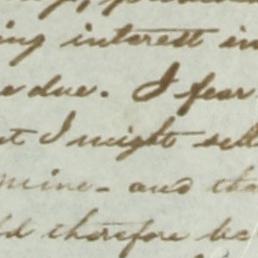 ing interest in
e due. I fear
t I might sell
mine - and tha
ld therefore be